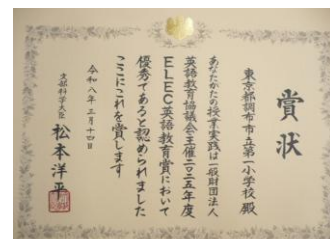 賞状
東京都調布市立第一小学校 殿
あなたがたの授業実践は一般財団法人
英語教育協議会主催二〇二五年度
ELEC英語教育賞において
優秀であると認められました
ここにこれを賞します
令和八年三月十四日
文部科学大臣 松本洋平